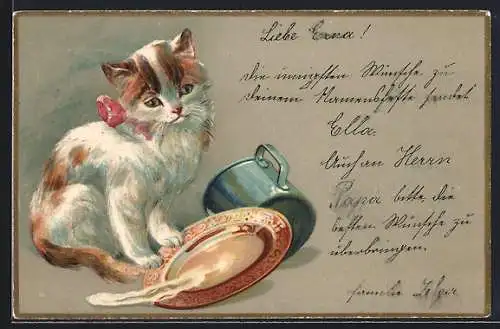 Liebe Erna!
Die innigsten Wünsche zu
Deinem Namensfeste sendet
Ella.
Auch an Herrn
Papa bitte, die
besten Wünsche zu
überbringen.
Familie